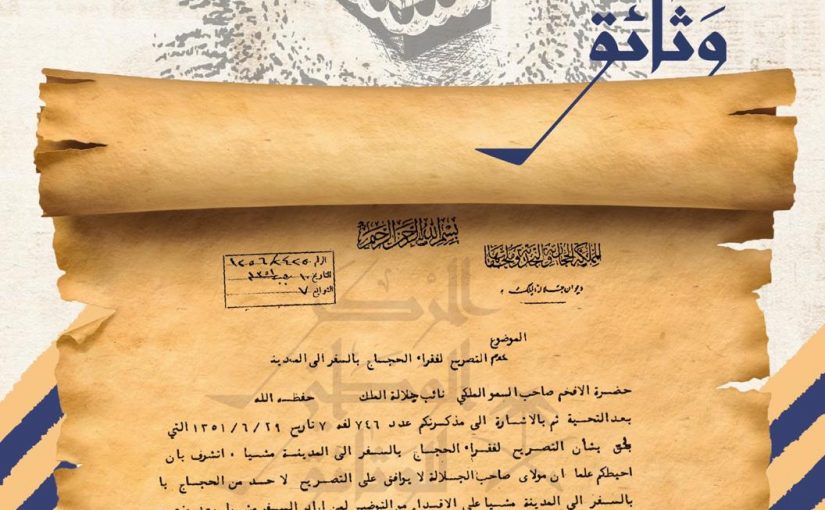 وَثائق
بسم الله الرحمن الرحيم
المملكة الحجازية والنجدية وملحقاتها
ديوان جلالة الملك
الرقم ١٢٥٦/٤٢٥
التاريخ
التوابع ٧
الموضوع
عدم التصريح لفقراء الحجاج بالسفر الى المدينة
حضرة الافخم صاحب السمو الملكي نائب جلالة الملك حفظه الله
بعد التحية ثم بالاشارة الى مذكرتكم عدد ٧٤٦ لفه ٧ تاريخ ١٣٥١/٦/٢٩ التي
بشأن التصريح لفقراء الحجاج بالسفر الى المدينة مشيا ٠ اتشرف بان
احيطكم علما ان مولاى صاحب الجلالة لا يوافق على التصريح لا حد من الحجاج با
بالسفر الى المدينة مشيا على الاقدام مع التوضيح لمن اراد السفر